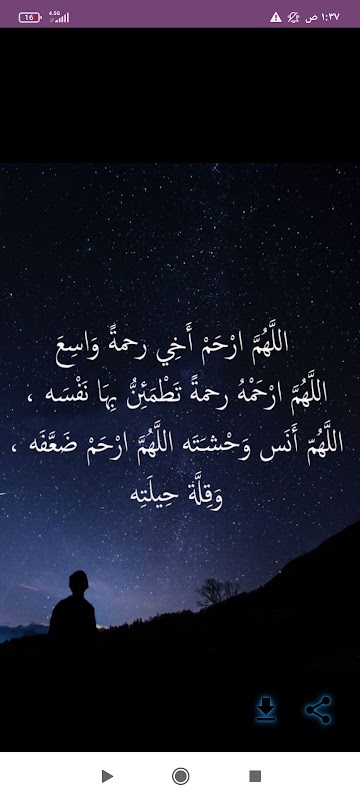 16 4.5G ١:٣٧ ص
اللَّهُمَّ ارْحَمْ أَخِي رحمةً وَاسِعَ
اللَّهُمَّ ارْحَمْهُ رحمةً تَطْمَئِنُّ بِهَا نَفْسَه ،
اللَّهُمّ أَنَس وَحْشَتَه اللَّهُمَّ ارْحَمْ ضَعَّفَه ،
وَقِلَّة حِيلَتِه